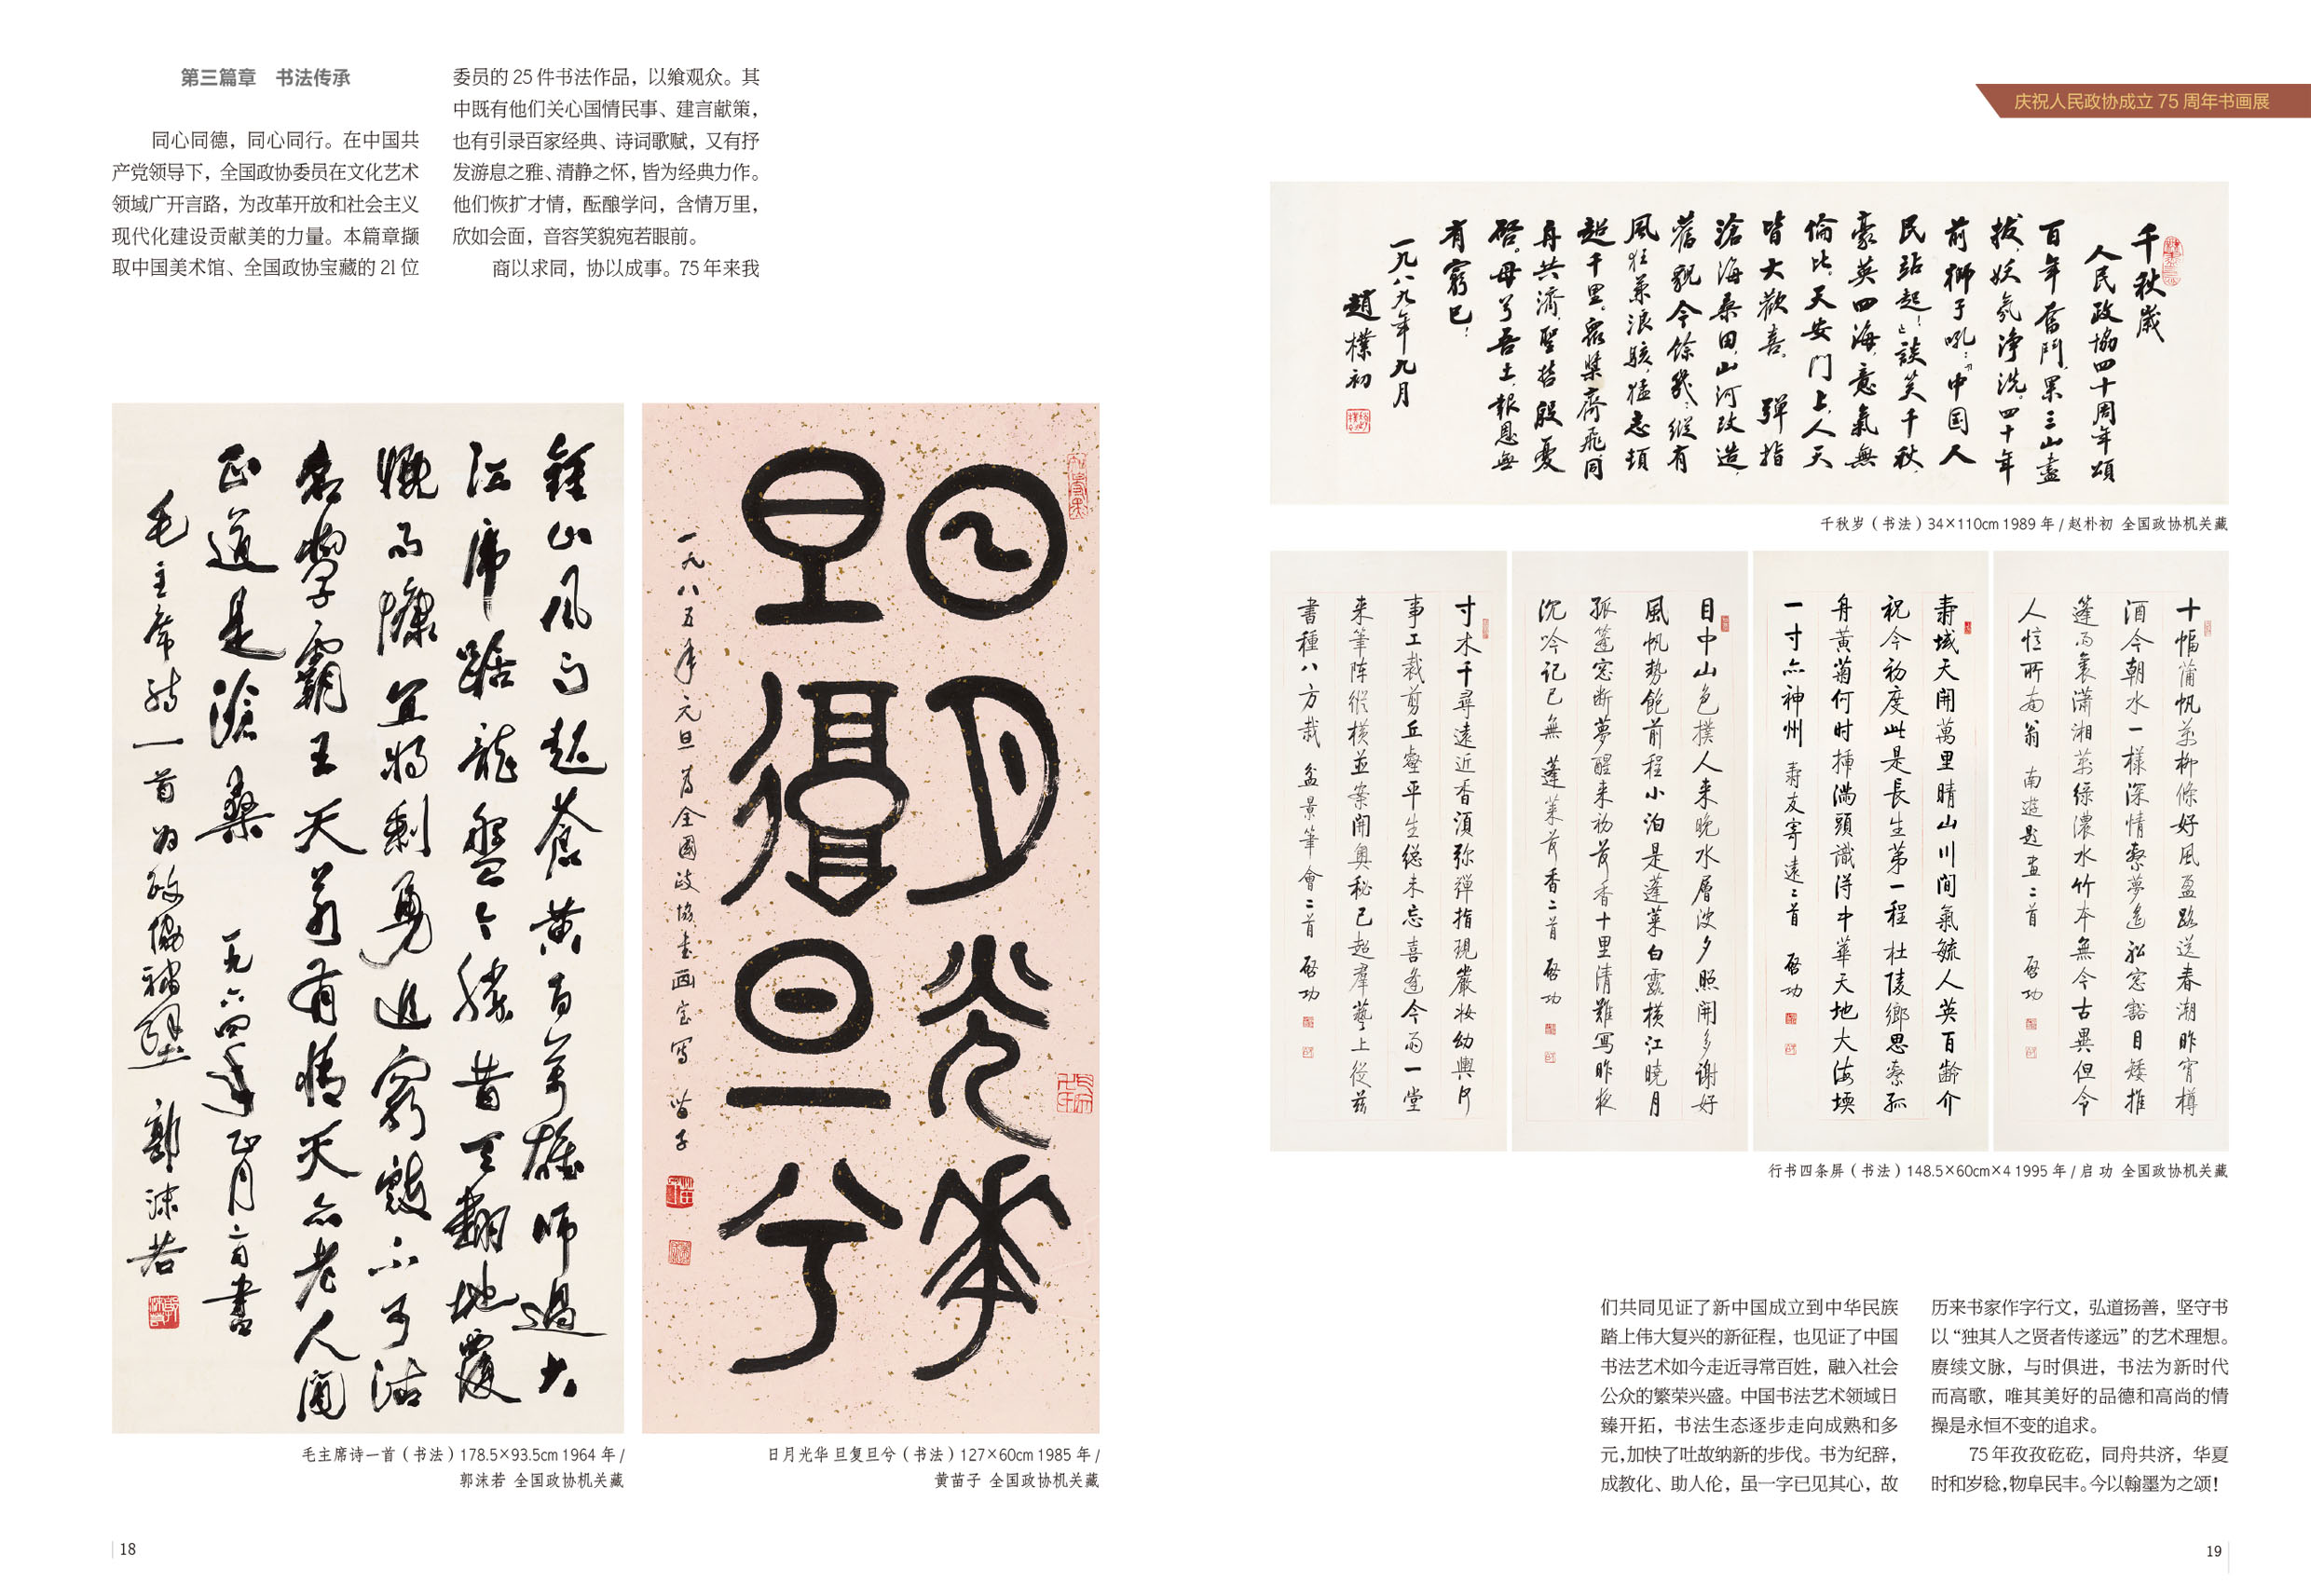 第三篇章　书法传承
同心同德，同心同行。在中国共
产党领导下，全国政协委员在文化艺术
领域广开言路，为改革开放和社会主义
现代化建设贡献美的力量。本篇章撷
取中国美术馆、全国政协宝藏的 21 位
委员的 25 件书法作品，以飨观众。其
中既有他们关心国情民事、建言献策，
也有引录百家经典、诗词歌赋，又有抒
发游息之雅、清静之怀，皆为经典力作。
他们恢扩才情，酝酿学问，含情万里，
欣如会面，音容笑貌宛若眼前。
商以求同，协以成事。75 年来我
鍾山风雨起蒼黄百萬雄师過大
江虎踞龍盤今勝昔天翻地覆
慨而慷宜将剩勇追窮寇不可沽
名學霸王天若有情天亦老人间
正道是滄桑 一九六四年正月 书
毛主席诗一首为政协補壁 郭沫若
毛主席诗一首（书法）178.5×93.5cm 1964 年 /
郭沫若 全国政协机关藏
日月光华
旦復旦兮
一九八五年元旦為全國政協書画室寫 苗子
日月光华 旦复旦兮（书法）127×60cm 1985 年 /
黄苗子 全国政协机关藏
18
庆祝人民政协成立 75 周年书画展
千秋歲
人民政協四十周年頌
百年奮鬥，累三山盡
拔，妖氛淨洗。四十年
前獅子吼：“中国人
民站起！”談笑千秋，
豪英四海，意氣無
倫比。天安門上，人天
皆大歡喜。 彈指
滄海桑田，山河改造，
舊貌今餘幾？縱有
風狂兼浪駭，猛志頓
超千里。衆槳齊飛，同
舟共濟，聖哲殷憂
啓。母兮吾土，報恩無
有窮已！
一九八九年九月
趙樸初
千秋岁（书法）34×110cm 1989 年 / 赵朴初 全国政协机关藏
十幅蒲帆萬柳條好風盈路送春潮昨宵樽
酒今朝水一樣深情索夢遙 船窓豁目矮推
蓬雨裏瀟湘萬绿濃水竹本無今古異但今
人憶所南翁 南遊题画二首 启功
壽域天開萬里晴山川间氣毓人英百齡介
祝今初度此是長生第一程 杜陵鄉思索孤
舟黄菊何时插满頭識得中華天地大海堧
一寸亦神州 壽友寄遠二首 启功
目中山色撲人来晚水層波夕照開多谢好
風帆勢飽前程小泊是蓬莱 白露横江晓月
孤篷窓断夢醒来初荷香十里清難寫昨夜
沉吟记已無 蓬莱荷香二首 启功
寸木千尋遠近杳須弥彈指現嚴妆幼輿丘
事工裁剪丘壑平生總未忘 喜逢今雨一堂
来筆阵縱横並案開奥秘已超羣藝上從兹
書種八方栽 盆景筆會二首 启功
行书四条屏（书法）148.5×60cm×4 1995 年 / 启 功 全国政协机关藏
们共同见证了新中国成立到中华民族
踏上伟大复兴的新征程，也见证了中国
书法艺术如今走近寻常百姓，融入社会
公众的繁荣兴盛。中国书法艺术领域日
臻开拓，书法生态逐步走向成熟和多
元，加快了吐故纳新的步伐。书为纪辞，
成教化、助人伦，虽一字已见其心，故
历来书家作字行文，弘道扬善，坚守书
以“独其人之贤者传遂远”的艺术理想。
赓续文脉，与时俱进，书法为新时代
而高歌，唯其美好的品德和高尚的情
操是永恒不变的追求。
75 年孜孜矻矻，同舟共济，华夏
时和岁稔，物阜民丰。今以翰墨为之颂！
19